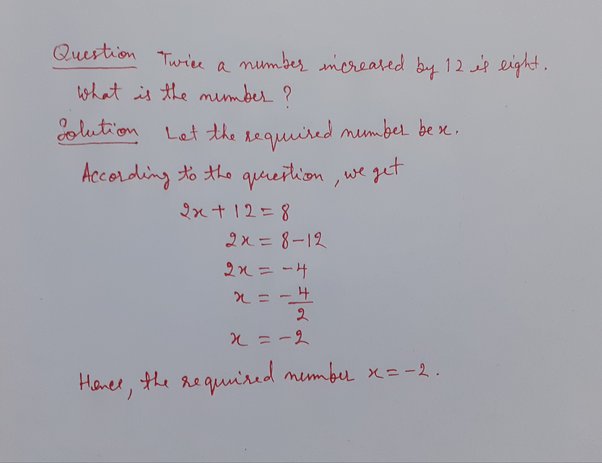 Question Twice a number increased by 12 is eight.
What is the number ?
Solution Let the required number be x.
According to the question, we get
2x + 12 = 8
2x = 8-12
2x = -4
x = -4/2
x = -2
Hence, the required number x = -2.